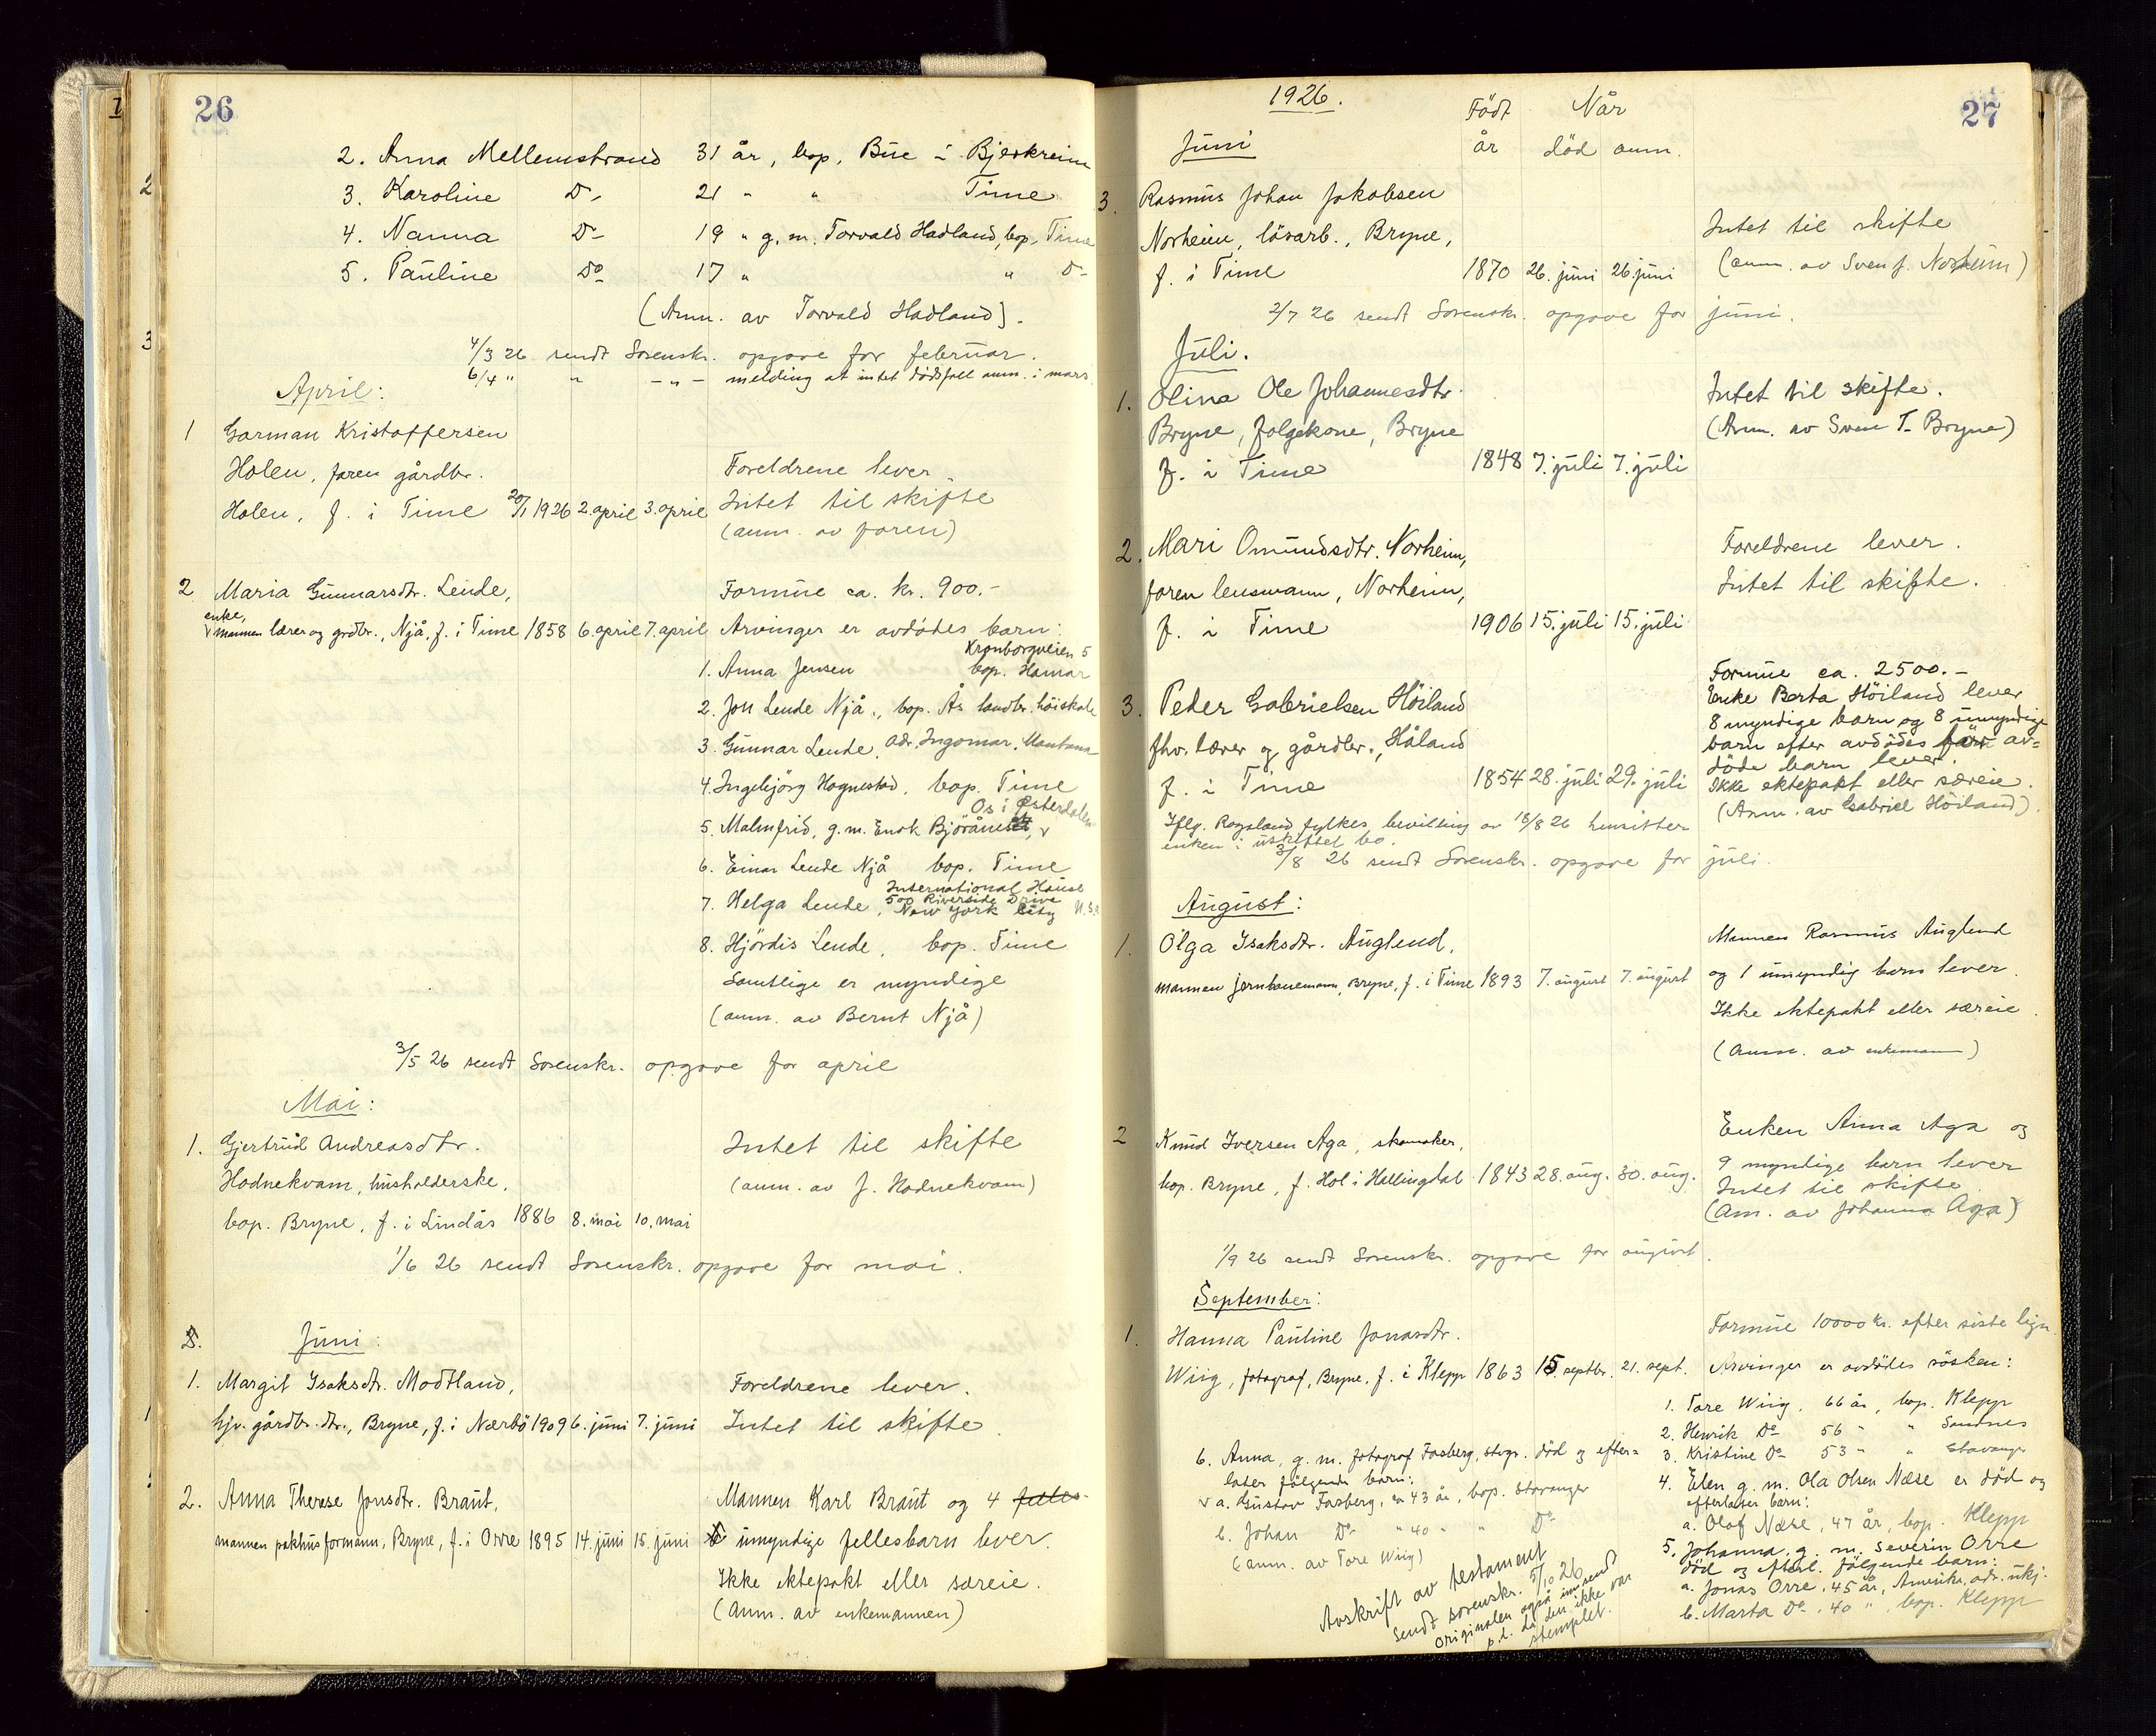 26
2. Anna Mellemstrand 31 år, bop. Bue i Bjerkreim
3. Karoline Do 21 " " Time
4. Nanna Do 19 " g. m. Torvald Hadland, bop. Time
5. Pauline Do 17 " " Do
(Anm. av Torvald Hadland).
4/3 26 sendt Sorenskr. opgave for februar.
6/4 " " - " - melding at intet dødsfall anm. i mars.
April:
1 Garman Kristoffersen
Holen, faren gårdbr. Foreldrene lever
Holen, f. i Time 20/1 1926 2. april 3. april Intet til skifte
(anm. av faren)
2 Maria Gunnarsdtr. Lende, Formue ca. kr. 900.-
enke,
mannen lærer og grdbr., Njå, f. i Time 1858 6. april 7. april Arvinger er avdødes barn:
Kronborgveien 5
1. Anna Jensen bop. Hamar
2. Jon Lende Njå, bop. Ås landbr. höiskole
3. Gunnar Lende, adr. Ingomar, Montana
4. Ingebjörg Hognestad, bop. Time
Os i Østerdalen
5. Malmfrid, g. m. Enok Björånes, v
6. Einar Lende Njå bop. Time
International House
7. Helga Lende, 500 Riverside Drive
New York City U.S.
8. Hjördis Lende, bop. Time
Samtlige er myndige
(anm. av Bernt Njå)
3/5 26 sendt Sorenskr. opgave for april
Mai:
1. Gjertrud Andreasdtr. Intet til skifte
Hodnekvam, husholderske, (anm. av J. Hodnekvam)
bop. Bryne, f. i Lindås 1886 8. mai 10. mai
1/6 26 sendt Sorenskr. opgave for mai.
Juni:
1. Margit Isaksdtr. Modtland, Foreldrene lever.
hjv. gårdbr. dtr., Bryne, f. i Nærbö 1909 6. juni 7. juni Intet til skifte
2. Anna Therese Jonsdtr. Braut, Mannen Karl Braut og 4 felles-
mannen pakhusformann, Bryne, f. i Orre 1895 14. juni 15. juni umyndige fellesbarn lever.
Ikke ektepakt eller særeie.
(Anm. av enkemannen)
27
1926.
Født Når
Juni år död anm.
3. Rasmus Johan Jakobsen
Norheim, lösarb., Bryne, Intet til skifte
f. i Time 1870 26. juni 26. juni (anm. av Sven J. Norheim)
2/7 26 sendt Sorenskr. opgave for juni.
Juli.
1. Olina Ole Johannesdtr. Intet til skifte.
Bryne, folgekone, Bryne (Anm. av Sven T. Bryne)
f. i Time 1848 7. juli 7. juli
2. Mari Omundsdtr. Norheim, Foreldrene lever.
faren lensmann, Norheim, Intet til skifte.
f. i Time 1906 15. juli 15. juli
Formue ca. 2500.-
3. Peder Gabrielsen Höiland Enke Berta Höiland lever
8 myndige barn og 8 umyndige
fhv. lærer og gårdbr., Håland barn efter avdødes av=
døde barn lever.
f. i Time 1854 28. juli 29. juli Ikke ektepakt eller særeie.
(Anm. av Gabriel Höiland)
Iflg. Rogaland fylkes bevilling av 18/8 26 hensitter
enken i uskiftet bo.
3/8 26 sendt Sorenskr. opgave for juli.
August:
1. Olga Isaksdtr. Auglend, Mannen Rasmus Auglend
mannen jernbanemann, Bryne, f. i Time 1893 7. august 7. august og 1 umyndig barn lever.
Ikke ektepakt eller særeie.
(Anm. av enkemann)
2 Knud Iversen Aga, skomaker, Enken Anna Aga og
9 myndige barn lever
bop. Bryne, f. Hol i Hallingdal 1843 28. aug. 30. aug. Intet til skifte
(Anm. av Johanna Aga)
1/9 26 sendt Sorenskr. opgave for august.
September:
1. Hanna Pauline Jonasdtr. Formue 10000 kr. efter siste lign.
Wiig, fotograf, Bryne, f. i Klepp 1863 15. septbr. 21. sept. Arvinger er avdødes søsken:
1. Tore Wiig, 66 år, bop. Klepp
2. Henrik Do 56 " " Sandnes
3. Kristine Do 53 " " Stavanger
4. Elen g. m. Ola Olsen Næse er död og
efterlater barn:
a. Olaf Næse, 47 år, bop. Klepp
5. Johanna, g. m. Severin Orre
död og efterl. følgende barn:
a. Jonas Orre, 45 år, Amerika, adr. ukj.
b. Marta Do, 40 ", bop. Klepp
6. Anna, g. m. fotograf Fasberg, Stvgr. död og efter=
later følgende barn:
v a. Gustav Fasberg, ca 43 år, bop. Stavanger
b. Johan Do " 40 " " Do
(anm. av Tore Wiig)
Avskrift av testament
sendt sorenskr. 5/10 26
Originalen også innsendt
p. d. da den ikke var
stemplet.